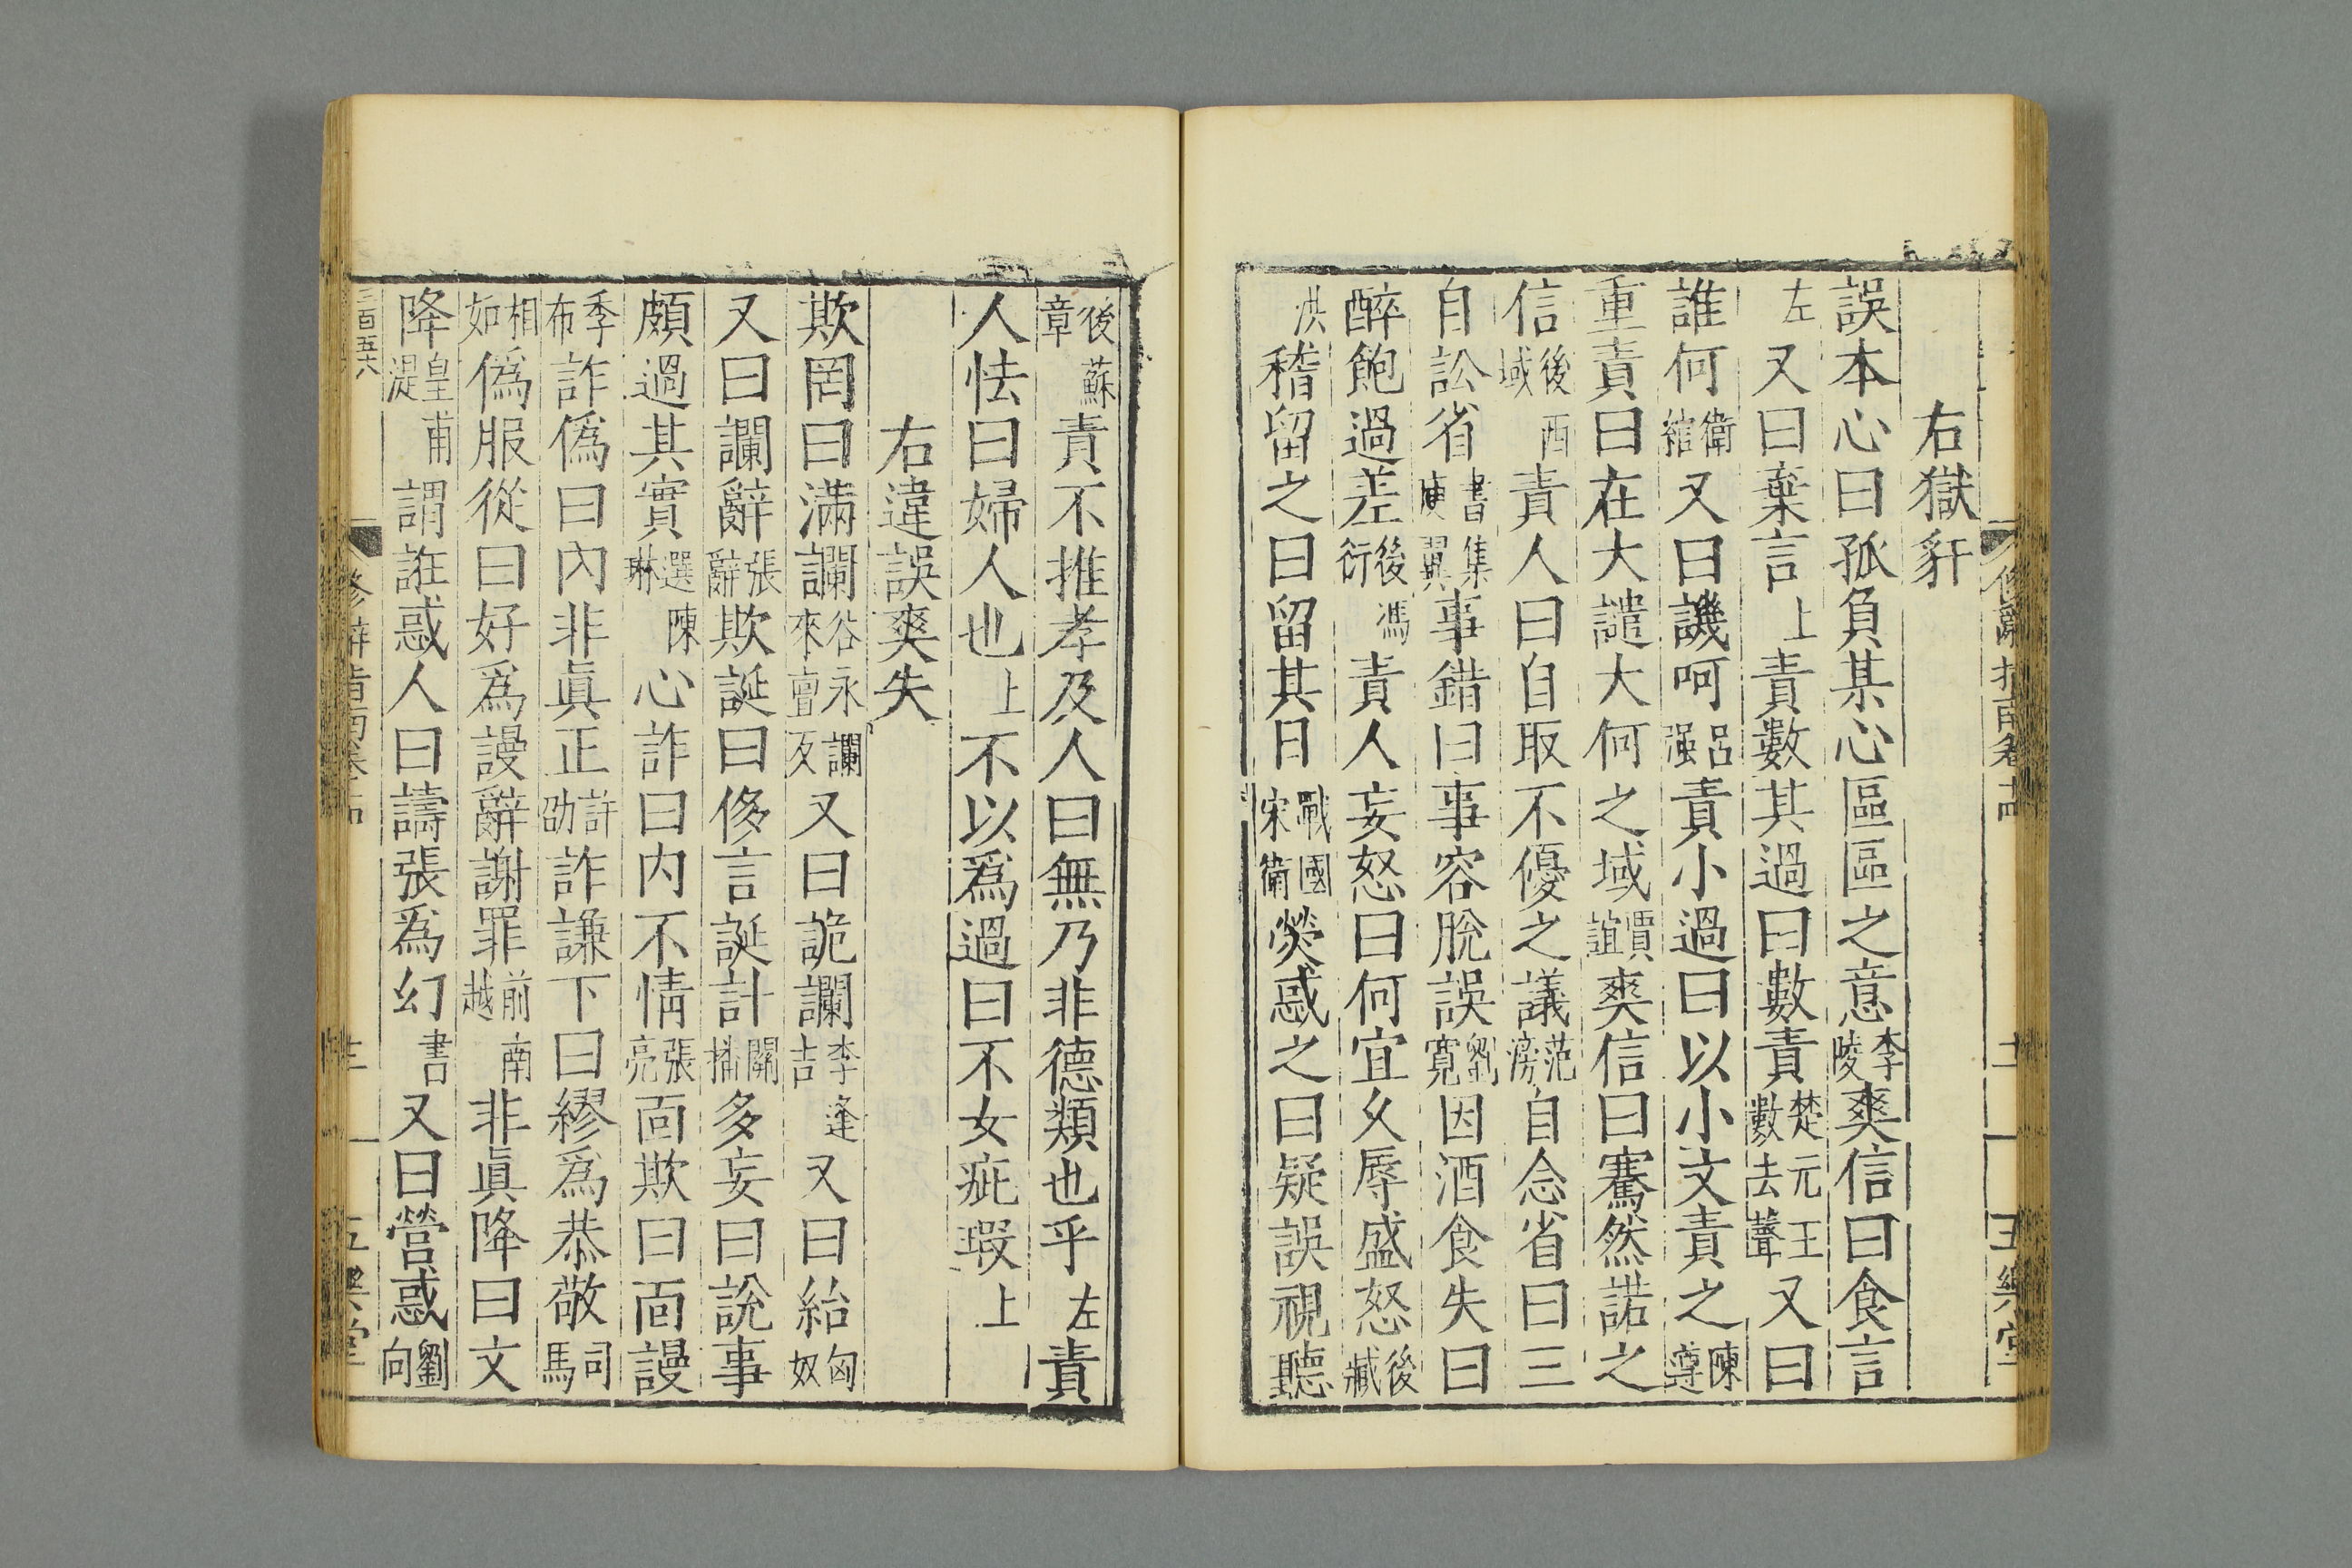 右獄豻
誤本心曰孤負某心區區之意李陵爽信曰食言
左又曰棄言上責數其過曰數責楚元王數去聲又曰
誰何衛綰又曰譏呵呂強責小過曰以小文責之陳遵
重責曰在大譴大何之域賈誼爽信曰騫然諾之
信後西域責人曰自取不優之議范滂自念省曰三
自訟省書集庾翼事錯曰事容脫誤劉寬因酒食失曰
醉飽過差後馮衍責人妄怒曰何宜久辱盛怒後臧
洪稽留之曰留其日戰國宋衛熒惑之曰疑誤視聽
後蘇章責不推孝及人曰無乃非德類也乎左責
人怯曰婦人也上不以爲過曰不女疵瑕上
右違誤爽失
欺罔曰滿讕谷永來亶讕反又曰詭讕李逢吉又曰紿匈奴
又曰讕辭張辭欺誕曰侈言誕計關播多妄曰說事
頗過其實選陳琳心詐曰内不情張亮面欺曰面謾
季布詐僞曰內非眞正許劭詐謙下曰繆爲恭敬司馬
相如僞服從曰好爲謾辭謝罪前南越非眞降曰文
降皇甫湜謂誑惑人曰譸張爲幻書又曰營惑劉向
三百五六
修辭指南卷十五
五樂堂